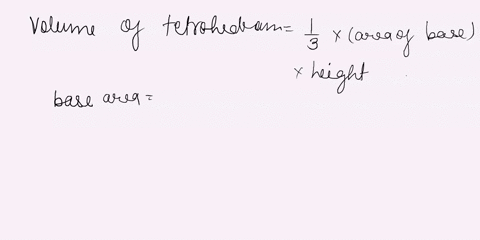 Volume of tetrohedram = 1/3 × (area of base)
× height
base area =